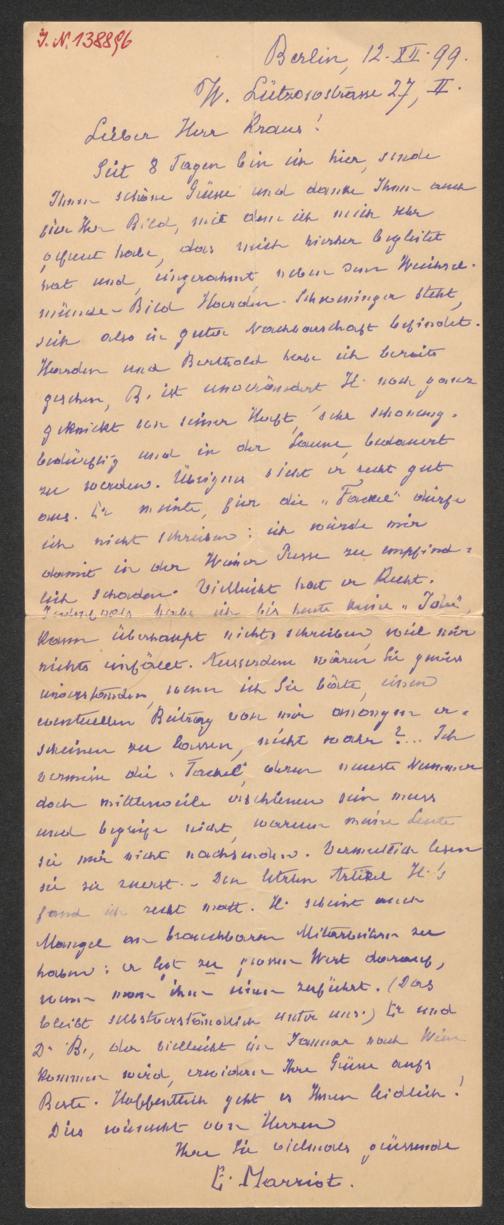 I. N. 138896
Berlin, 12. XII. 99.
W. Lützowstrasse 27, II.
Lieber Herr Kraus!
Seit 8 Tagen bin ich hier, sende
Ihnen schöne Grüsse und danke Ihnen auch
hier Ihr Bild, mit dem ich mich sehr
gefreut habe, das mich hierher begleitet
hat und, eingerahmt, neben dem Weichsel-
münde-Bild Harden-Schweninger steht,
sich also in guter Nachbarschaft befindet.
Harden und Berthold habe ich bereits
gesehen, B. ist unverändert H. noch ganz
geknickt von seiner Haft, sehr schonungs-
bedürftig und in der Laune, bedauert
zu werden. Übrigens sieht er recht gut
aus. Er meinte, für die „Fackel" dürfe
ich nicht schreiben: ich würde mir
damit in der Wiener Presse zu empfind-
lich schaden. Vielleicht hat er Recht.
Jedenfalls habe ich bis heute keine „Idee",
kann überhaupt nichts schreiben, weil mir
nichts einfällt. Ausserdem wären Sie gewiss
einverstanden, wenn ich Sie bäte, einen
eventuellen Beitrag von mir anonym er-
scheinen zu lassen, nicht wahr?... Ich
vermisse die „Fackel", deren neueste Nummer
doch mittlerweile erschienen sein muss
und begreife nicht, warum meine Leute
sie mir nicht nachsenden. Vermutlich lesen
sie sie zuerst. - Den letzten Artikel H.'s
fand ich recht matt. H. scheint auch
Mangel an brauchbaren Mitarbeitern zu
haben: er legt zu grossen Wert darauf,
wenn man ihm einen zuführt. (Das
bleibt selbstverständlich unter uns.) Er und
Dr. B., der vielleicht im Januar nach Wien
kommen wird, erwidern Ihre Grüsse aufs
Beste. Hoffentlich geht es Ihnen leidlich!
Dies wünscht von Herzen
Ihre Sie vielmals grüssende
E. Marriot.